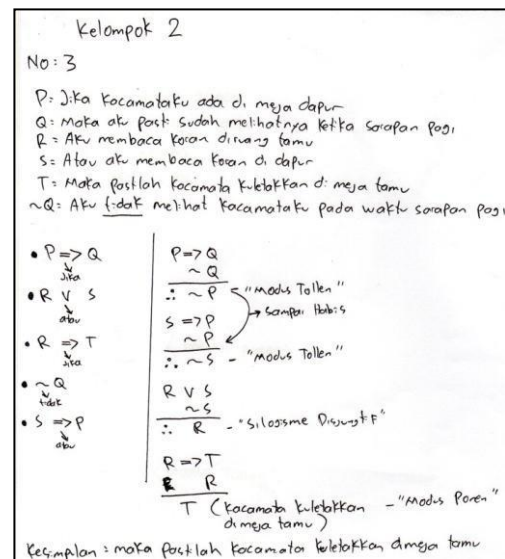 Kelompok 2
No : 3
P : Jika kacamataku ada di meja dapur
Q : Maka aku pasti sudah melihatnya ketika sarapan pagi
R = Aku membaca koran diruang tamu
S : Atau aku membaca koran di dapur
T : Maka pastilah kacamata kuletakkan di meja tamu
~Q : Aku tidak melihat kacamataku pada waktu sarapan pagi
• P => Q
Jika
• R V S
atau
• R => T
Jika
• ~Q
tidak
• S => P
atau
P => Q
~Q
∴ ~P "Modus Tollen"
Sampai Habis
S => P
~P
∴ ~S - "Modus Tollen"
R V S
~S
∴ R - "Silogisme Disjungtif"
R => T
R
T (Kacamata kuletakkan di meja tamu) - "Modus Ponen"
Kesimpulan : maka pastilah kacamata kuletakkan dimeja tamu